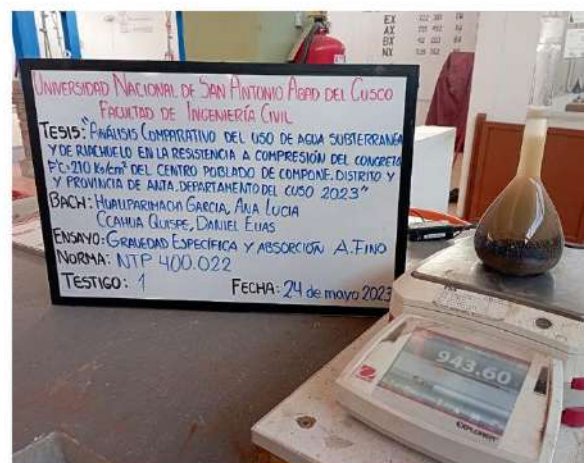 EX
AX
BX
NX
UNIVERSIDAD NACIONAL DE SAN ANTONIO ABAD DEL CUSCO
FACULTAD DE INGENIERÍA CIVIL
TESIS: "ANÁLISIS COMPARATIVO DEL USO DE AGUA SUBTERRANEA
Y DE RIACHUELO EN LA RESISTENCIA A COMPRESIÓN DEL CONCRETO
F'C=210 KG/cm² DEL CENTRO POBLADO DE COMPONE. DISTRITO Y
Y PROVINCIA DE ANTA. DEPARTAMENTO DEL CUSO 2023"
BACH: HUALLPARIMACHI GARCIA, ANA LUCIA
CCAHUA QUISPE, DANIEL ELIAS
ENSAYO: GRAVEDAD ESPECÍFICA Y ABSORCIÓN A.FINO
NORMA: NTP 400.022
TESTIGO: 1 FECHA: 24 de mayo 2023
943.60
EXPLORER